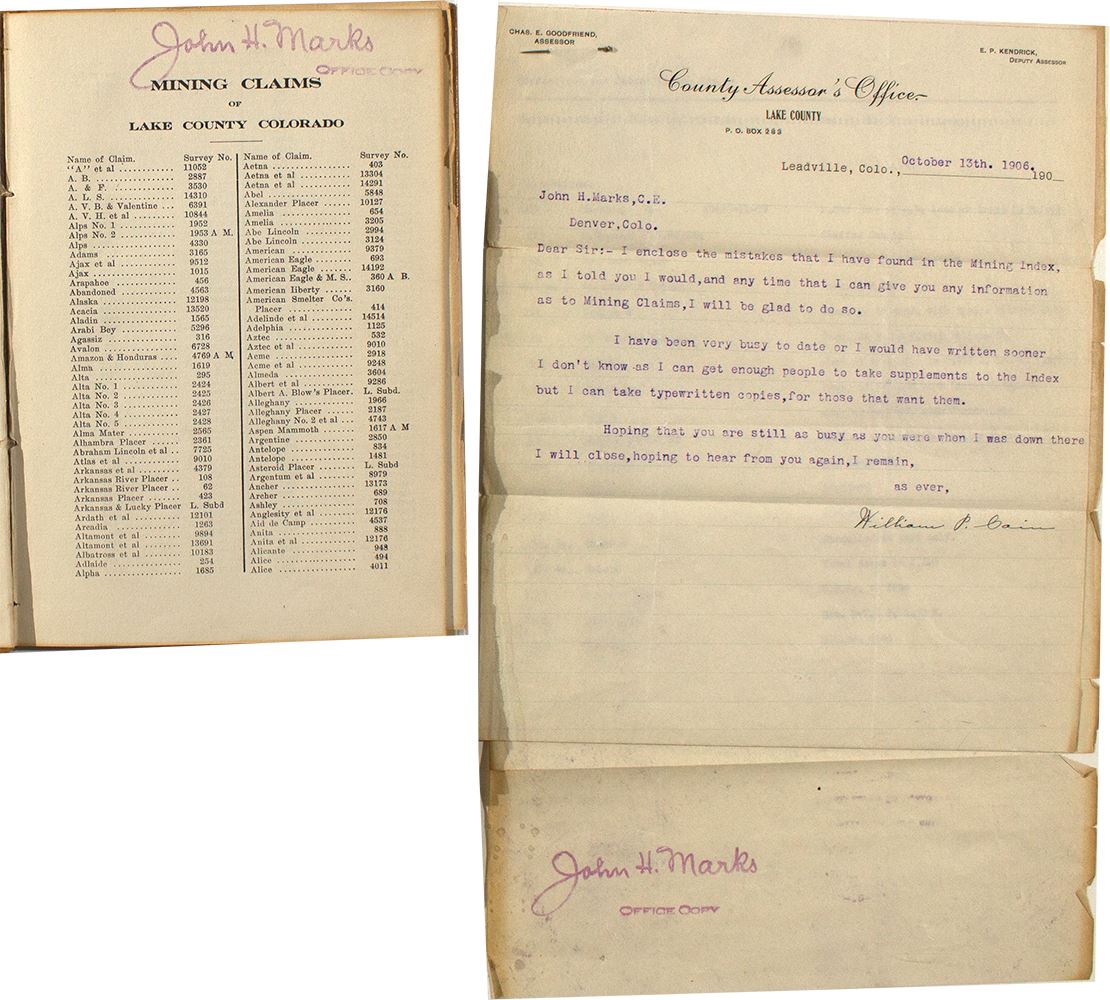 John H. Marks
OFFICE COPY
MINING CLAIMS
OF
LAKE COUNTY COLORADO
Name of Claim. Survey No.
"A" et al ........... 11052
A. B. ................ 2887
A. & F. .............. 3530
A. L. S. ............. 14310
A. V. B. & Valentine ... 6391
A. V. H. et al ........ 10844
Alps No. 1 ........... 1952
Alps No. 2 ........... 1953 A M.
Alps ................. 4330
Adams ................ 3165
Ajax et al ........... 9512
Ajax ................. 1015
Arapahoe ............. 456
Abandoned ............ 4563
Alaska ............... 12198
Acacia ............... 13520
Aladin ............... 1565
Arabi Bey ............ 5296
Agassiz .............. 316
Avalon ............... 6728
Amazon & Honduras .... 4769 A M
Alma ................. 1619
Alta ................. 295
Alta No. 1 ........... 2424
Alta No. 2 ........... 2425
Alta No. 3 ........... 2426
Alta No. 4 ........... 2427
Alta No. 5 ........... 2428
Alma Mater ........... 2565
Alhambra Placer ...... 2361
Abraham Lincoln et al .. 7725
Atlas et al .......... 9010
Arkansas et al ....... 4379
Arkansas River Placer .. 108
Arkansas River Placer .. 62
Arkansas Placer ....... 423
Arkansas & Lucky Placer L. Subd
Ardath et al ......... 12101
Arcadia .............. 1263
Altamont et al ....... 9894
Altamont et al ....... 13691
Albatross et al ...... 10183
Adlaide .............. 254
Alpha ................ 1685
Name of Claim. Survey No.
Aetna ................ 403
Aetna et al .......... 13304
Aetna et al .......... 14291
Abel ................. 5848
Alexander Placer ..... 10127
Amelia ............... 654
Amelia ............... 3205
Abe Lincoln .......... 2994
Abe Lincoln .......... 3124
American ............. 9379
American Eagle ....... 693
American Eagle ....... 14192
American Eagle & M. S.. 360 A B.
American liberty ..... 3160
American Smelter Co's.
Placer ............... 414
Adelinde et al ....... 14514
Adelphia ............. 1125
Aztec ................ 532
Aztec et al .......... 9010
Acme ................. 2918
Acme et al ........... 9248
Almeda ............... 3604
Albert et al ......... 9286
Albert A. Blow's Placer. L. Subd.
Alleghany ............ 1966
Alleghany Placer ..... 2187
Alleghany No. 2 et al ... 4743
Aspen Mammoth ....... 1617 A M
Argentine ............ 2850
Antelope ............. 834
Antelope ............. 1481
Asteroid Placer ...... L. Subd
Argentum et al ....... 8979
Ancher ............... 13173
Archer ............... 689
Ashley ............... 708
Anglesity et al ...... 12176
Aid de Camp .......... 4537
Anita ................ 888
Anita et al .......... 12176
Alicante ............. 948
Alice ................ 494
Alice ................ 4011
CHAS. E. GOODFRIEND,
ASSESSOR
E. P. KENDRICK,
DEPUTY ASSESSOR
County Assessor's Office
LAKE COUNTY
P. O. BOX 283
Leadville, Colo., October 13th. 1906. 190
John H.Marks,C.E.
Denver,Colo.
Dear Sir:- I enclose the mistakes that I have found in the Mining Index,
as I told you I would,and any time that I can give you any information
as to Mining Claims,I will be glad to do so.
I have been very busy to date or I would have written sooner
I don't know as I can get enough people to take supplements to the Index
but I can take typewritten copies,for those that want them.
Hoping that you are still as busy as you were when I was down there
I will close,hoping to hear from you again,I remain,
as ever,
William P. Cain
John H. Marks
OFFICE COPY